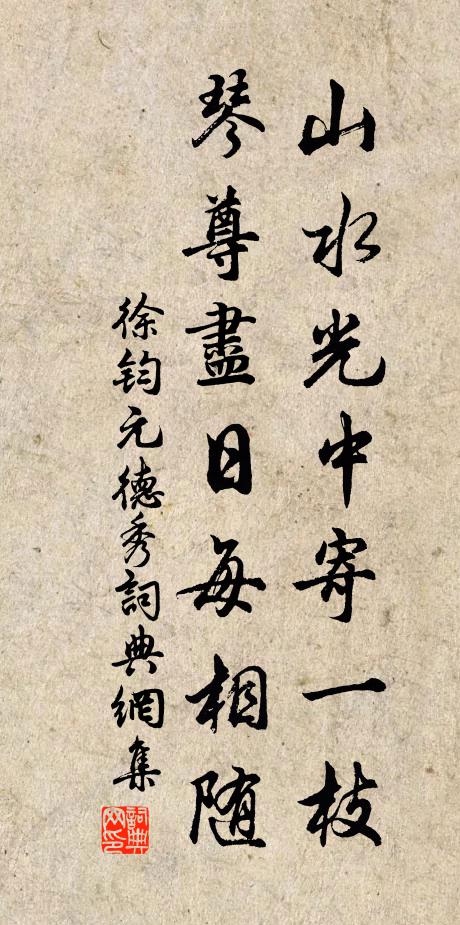 山水光中寄一枝
琴尊盡日每相随
徐鈞元德秀詞典網集
詞典网印